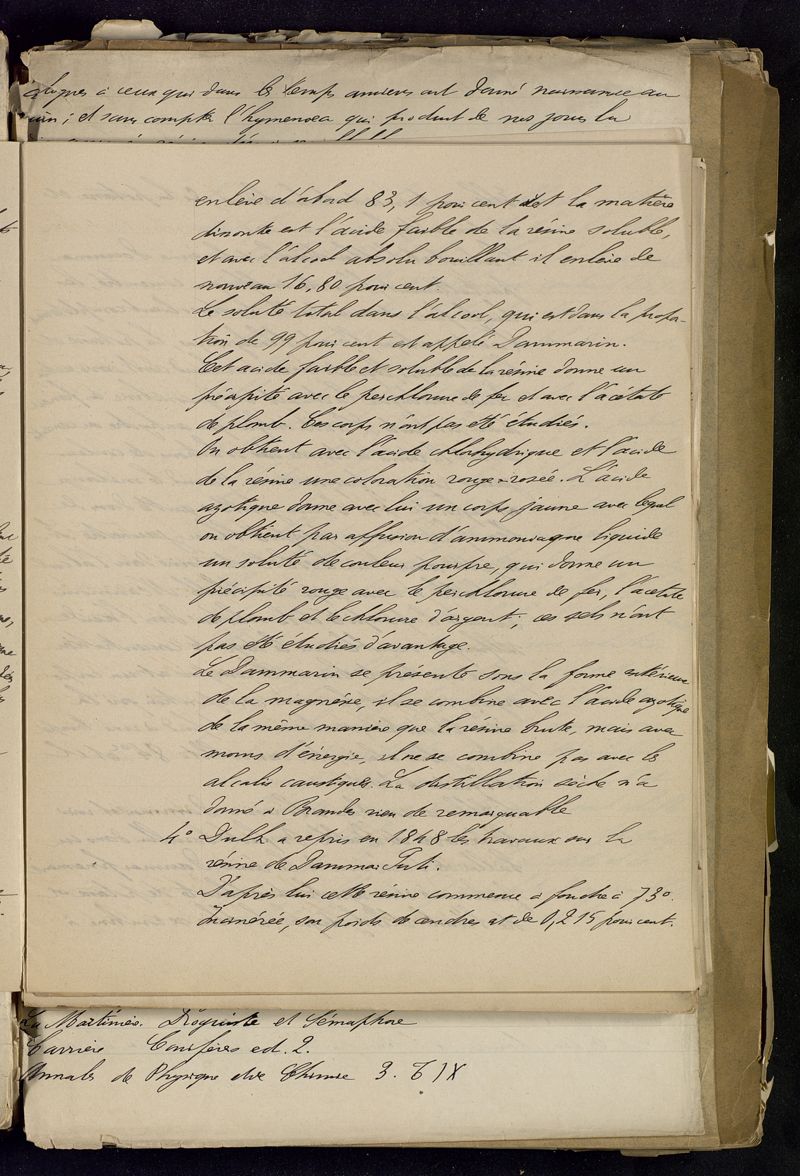 à ceux qui dans les temps anciens ont donné naissance au
; et sans compter l'hymenoea qui produit de nos jours la
enlève d'abord 83,1 pour cent et la matière
dissoute est l'acide faible de la résine soluble,
et avec l'alcool absolu bouillant il enlève de
nouveau 16,80 pour cent.
Le soluté total dans l'alcool, qui est dans la propor-
tion de 99 pour cent est appelé Dammarin.
Cet acide faible et soluble de la résine donne un
précipité avec le perchlorure de fer et avec l'acétate
de plomb. Ces corps n'ont pas été étudiés.
On obtient avec l'acide chlorhydrique et l'acide
de la résine une coloration rouge-rosée. L'acide
azotique donne avec lui un corps jaune avec lequel
on obtient par affusion d'ammoniaque liquide
un soluté de couleur pourpre, qui donne un
précipité rouge avec le perchlorure de fer, l'acétate
de plomb et le chlorure d'argent; ces sels n'ont
pas été étudiés d'avantage.
Le Dammarin se présente sous la forme extérieure
de la magnésie, il se combine avec l'acide azotique
de la même manière que la résine brute, mais avec
moins d'énergie, il ne se combine pas avec les
alcalis caustiques. La distillation sèche n'a
donné à Brandes rien de remarquable
4° Dulk a repris en 1848 les travaux sur la
résine de Dammar Puti.
D'après lui cette résine commence à fondre à 73°.
Incinérée, son poids de cendres est de 0,215 pour cent.
La Martinière. Droguiste et Sémaphore
Carrière Conifères ed. 2.
Annales de Physique et de Chimie 3. T IX